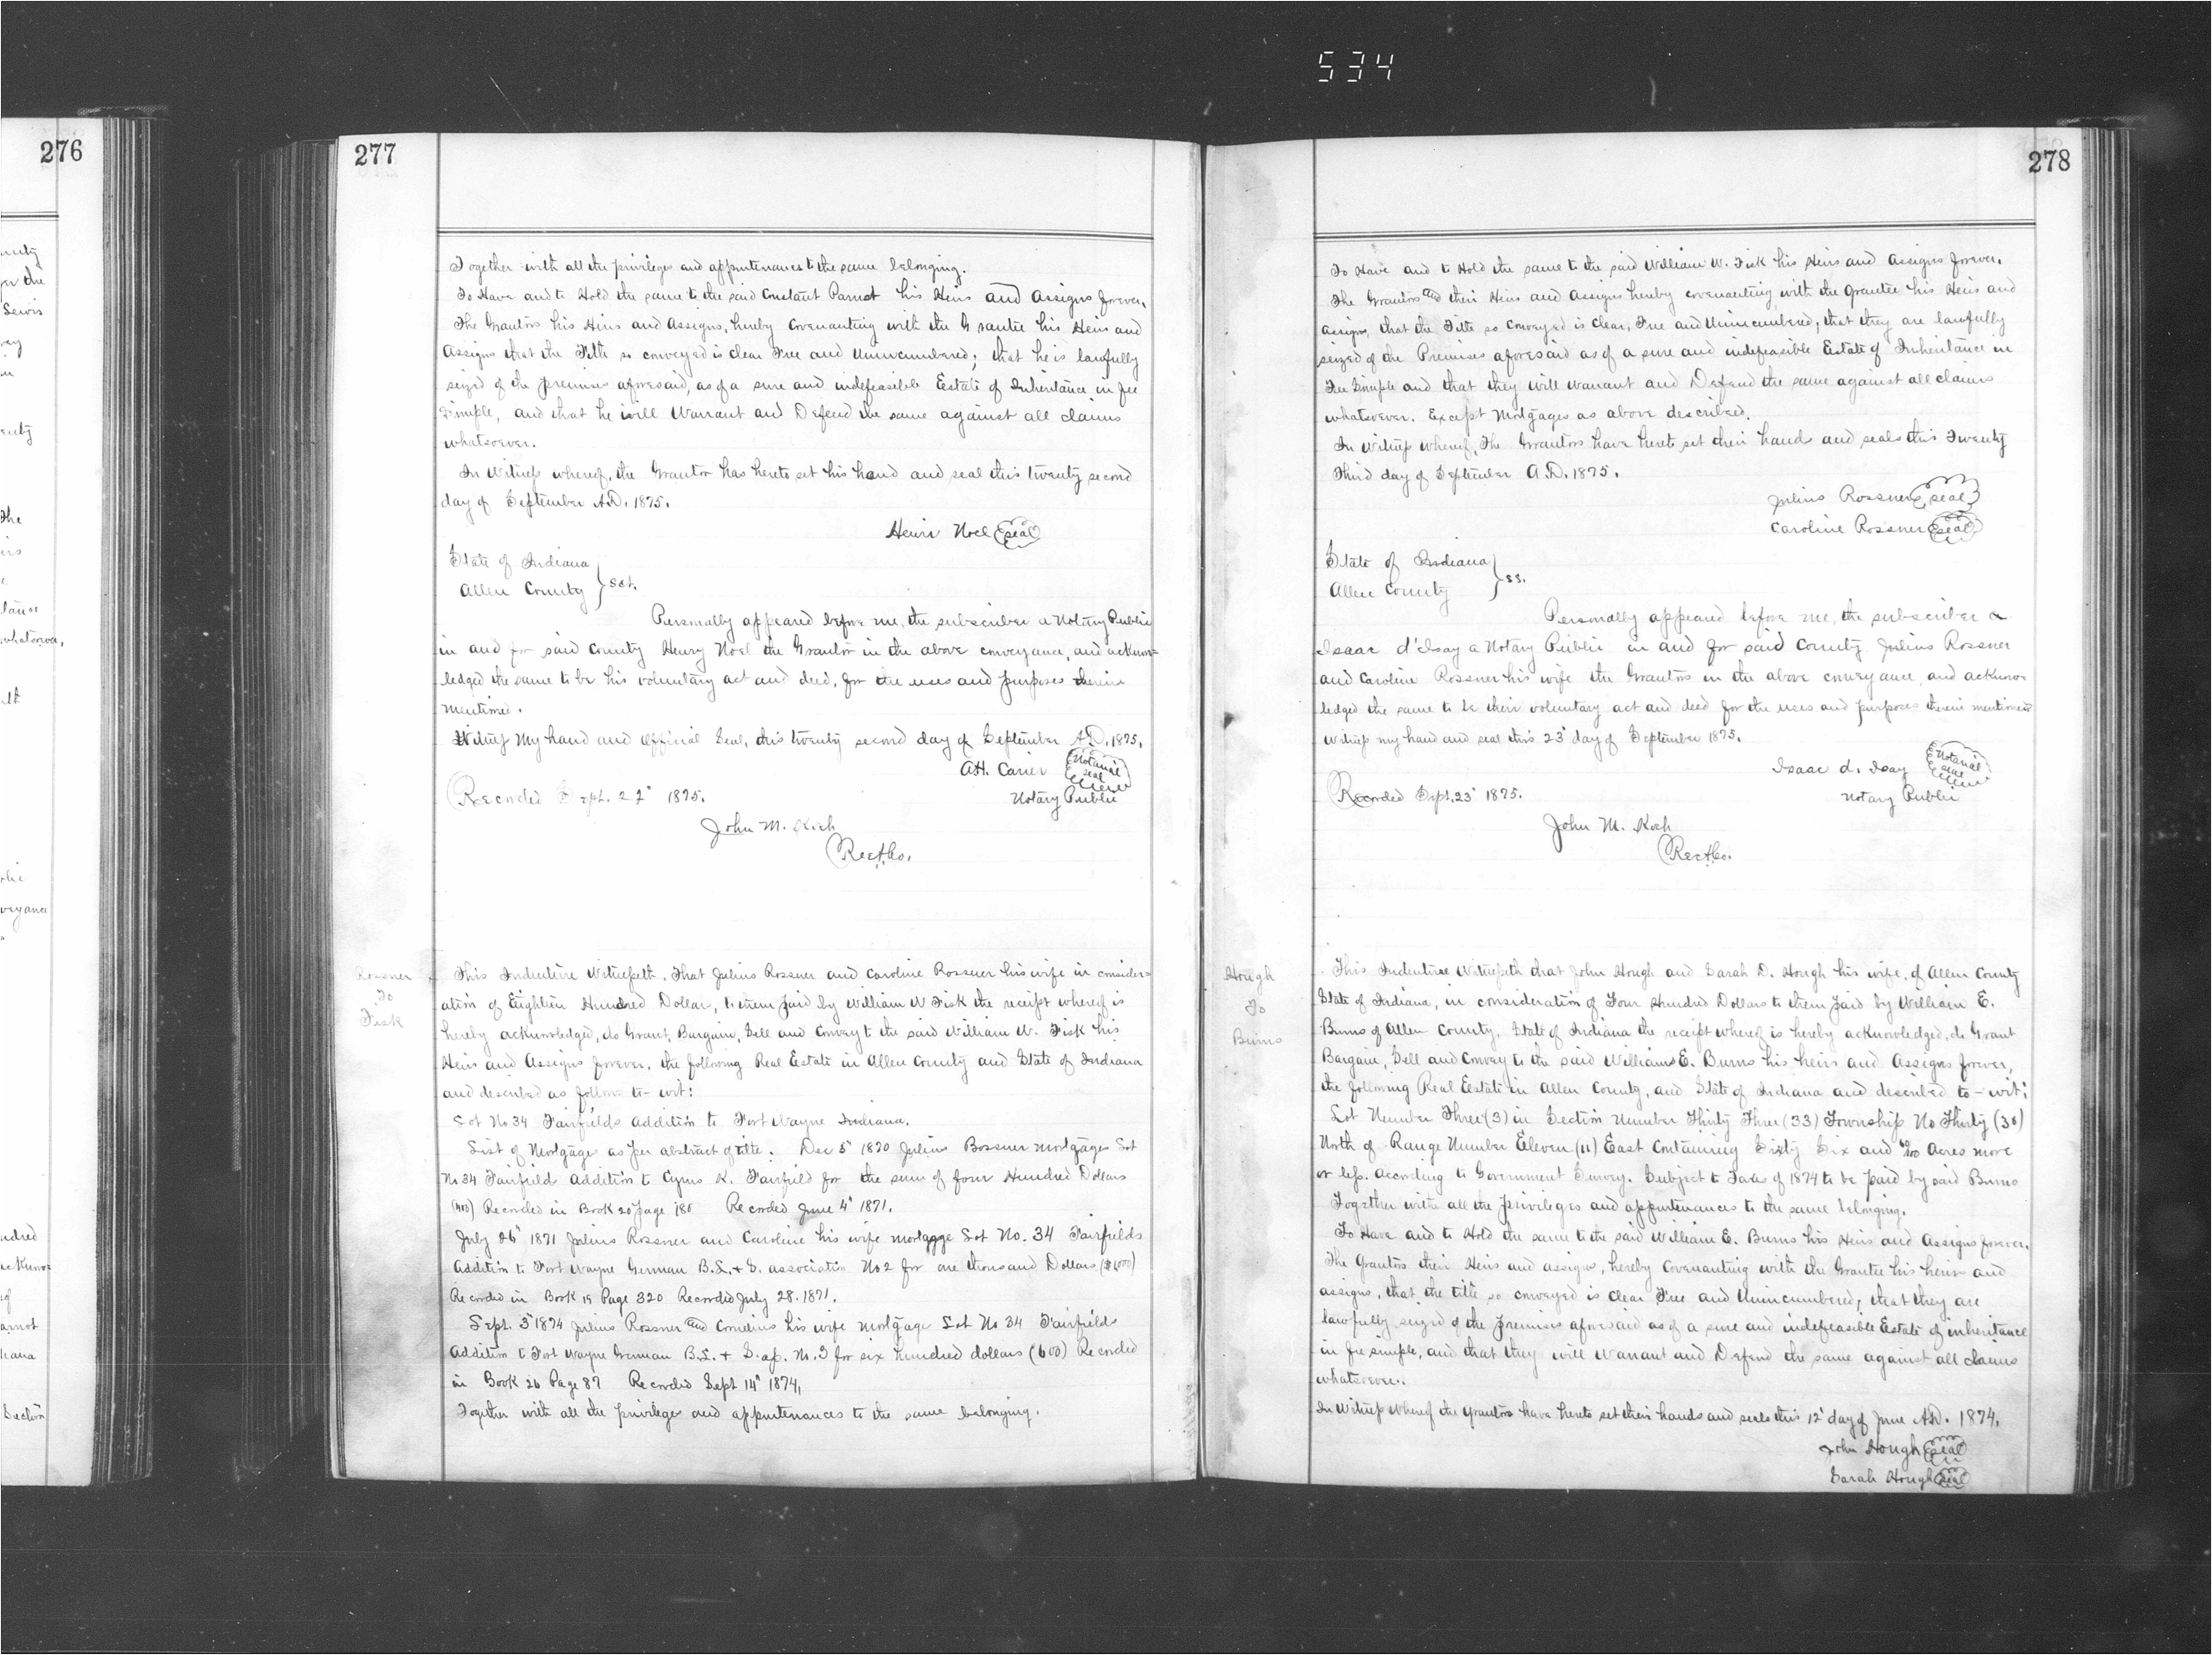 534
276
277
Together with all the privileges and appurtenances to the same belonging.
To Have and to Hold the same to the said Constant Parnot his Heirs and Assigns forever,
The Grantors his Heirs and Assigns, hereby Covenanting with the Grantee his Heirs and
Assigns that the Title so conveyed is clear Free and Unincumbered; that he is lawfully
seized of the premises aforesaid, as of a sure and indefeasible Estate of Inheritance in fee
Simple, and that he will Warrant and Defend the same against all claims
whatsoever.
In Witness whereof, the Grantor has hereto set his hand and seal this twenty second
day of September A.D. 1875.
Henri Noel seal
State of Indiana
Allen County } sct.
Personally appeared before me, the subscriber a Notary Public
in and for said County Henry Noel the Grantor in the above conveyance, and acknow=
ledged the same to be his voluntary act and deed, for the uses and purposes therein
mentioned.
Witness My hand and Official Seal, this twenty second day of September A.D. 1875.
A.H. Carier Notarial seal
Recorded Sept. 22" 1875. Notary Public
John M. Koch
Rec A Co.
Rossner
To
Fisk
This Indenture Witnesseth, That Julius Rossner and Caroline Rossner his wife in consider=
ation of Eighteen Hundred Dollar, to them paid by William W Fisk the receipt whereof is
hereby acknowledged, do Grant, Bargain, Sell and Convey to the said William W. Fisk his
Heirs and Assigns forever, the following Real Estate in Allen County and State of Indiana
and described as follows to-wit:
Lot No 34 Fairfields Addition to Fort Wayne Indiana.
List of Mortgages as per abstract of title. Dec 5" 1870 Julius Bossner mortgages Lot
No 34 Fairfields Addition to Cyrus K. Fairfield for the sum of four Hundred Dollars
(400) Recorded in Book 20 page 180 Recorded June 4" 1871.
July 26" 1871 Julius Rossner and Caroline his wife mortgage Lot No. 34 Fairfields
Addition to Fort Wayne German B.L. + S. association No 2 for one thousand Dollars ($1000)
Recorded in Book 19 Page 320 Recorded July 28. 1871.
Sept. 3" 1874 Julius Rossner and Cornelius his wife Mortgage Lot No 34 Fairfields
Addition to Fort Wayne German B.L. + S. as. No. 3 for six hundred dollars (600) Recorded
in Book 26 Page 87 Recorded Sept 14" 1874,
Together with all the privileges and appurtenances to the same belonging.
278
To Have and to Hold the same to the said William W. Fisk his Heirs and Assigns forever,
The Grantors and their Heirs and Assigns hereby covenanting with the Grantee his Heirs and
assigns, that the Title so Conveyed is Clear, Free and Unincumbered; that they are lawfully
seized of the Premises aforesaid as of a sure and indefeasible Estate of Inheritance in
Fee Simple and that they will warrant and Defend the same against all claims
whatsoever. Except Mortgages as above described.
In Witness whereof, The Grantors have hereto set their hands and seals this Twenty
Third day of September A.D. 1875.
Julius Rossner seal
Caroline Rossner seal
State of Indiana
Allen County } ss.
Personally appeared before me, the subscriber a
Isaac d'Isay a Notary Public in and for said County Julius Rossner
and Caroline Rossner his wife the Grantors in the above conveyance, and acknow-
ledged the same to be their voluntary act and deed for the uses and purposes therein mentioned
Witness my hand and seal this 23" day of September 1875.
Isaac d. Isay Notarial seal
Recorded Sept. 23" 1875. Notary Public
John M. Koch
Rec A Co.
Hough
To
Burns
This Indenture Witnesseth that John Hough and Sarah D. Hough his wife, of Allen County
State of Indiana, in consideration of Four Hundred Dollars to them paid by William E.
Burns of Allen County, State of Indiana the receipt whereof is hereby acknowledged, do Grant
Bargain, Sell and Convey to the said Williams E. Burns his heirs and Assigns forever,
the following Real Estate in Allen County, and State of Indiana and described to-wit:
Lot Number Three (3) in Section Number Thirty Three (33) Township No Thirty (30)
North of Range Number Eleven (11) East Containing Sixty Six and /100 Acres more
or less. According to Government Survey. Subject to Taxes of 1874 to be paid by said Burns
Together with all the privileges and appurtenances to the same belonging.
To Have and to Hold the same to the said William E. Burns his Heirs and Assigns forever,
The Grantors their Heirs and assigns, hereby Covenanting with the Grantee his heirs and
assigns, that the title so conveyed is clear Free and Unincumbered, that they are
lawfully seized of the premises aforesaid as of a sure and indefeasible Estate of inheritance
in fee simple, and that they will warrant and Defend the same against all claims
whatsoever.
In Witness Whereof the Grantors have hereto set their hands and seals this 12" day of June A.D. 1874,
John Hough seal
Sarah Hough seal